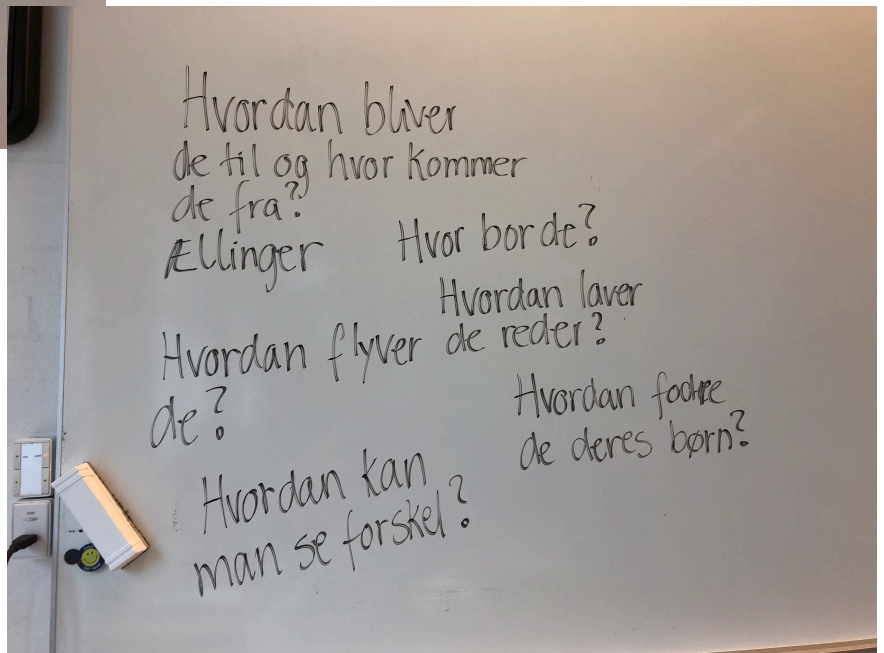 Hvordan bliver
de til og hvor kommer
de fra?
Ællinger
Hvor bor de?
Hvordan laver
de reder?
Hvordan flyver
de?
Hvordan
de deres børn?
Hvordan kan
man se forskel?